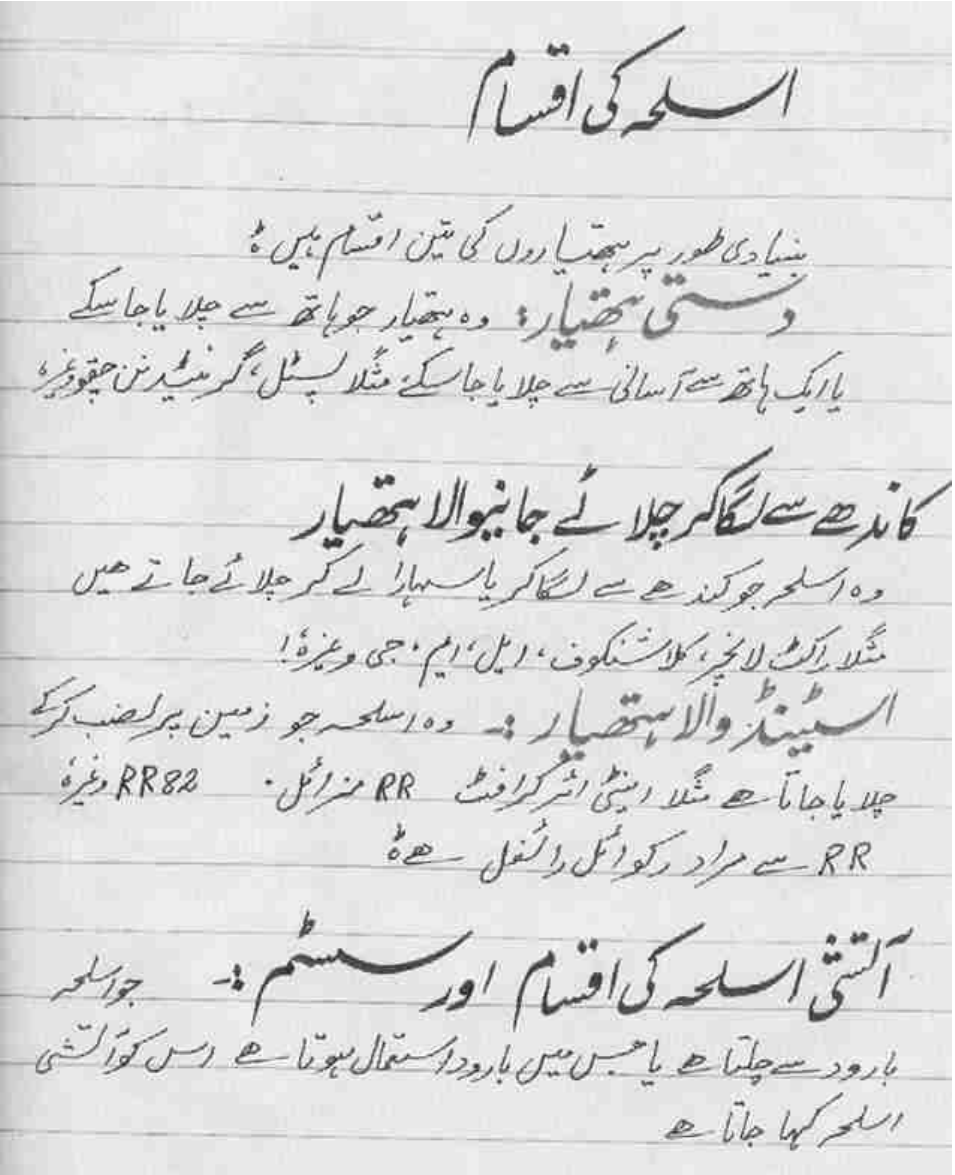 اسلحہ کی اقسام
بنیادی طور پر ہتھیاروں کی تین اقسام ہیں ۂ
دستی ہتھیار: وہ ہتھیار جو ہاتھ سے چلایا جا سکے
یا ایک ہاتھ سے آسانی سے چلایا جا سکے مثلا پسٹل، گرنیڈ گن چقو وغیرہ
کاندھے سے لگا کر چلائے جانیوالا ہتھیار
وہ اسلحہ جو کندھے سے لگا کر یا سہارا لے کر چلائے جاتے ھیں
مثلا راکٹ لانچر، کلاشنکوف، ایل، ایم، جی وغیرۂ!
اسٹینڈ والا ہتھیار :- وہ اسلحہ جو زمین پر نصب کرکے
چلایا جاتا ھے مثلا اینٹی ائر کرافٹ RR میزائل. RR82 وغیرۂ
RR سے مراد رکوائل رائفل ھے ۂ
آتشی اسلحہ کی اقسام اور سسٹم :- جو اسلحہ
بارود سے چلتا ھے یا جس میں بارود استعمال ہوتا ھے اس کو آتشی
اسلحہ کہا جاتا ھے